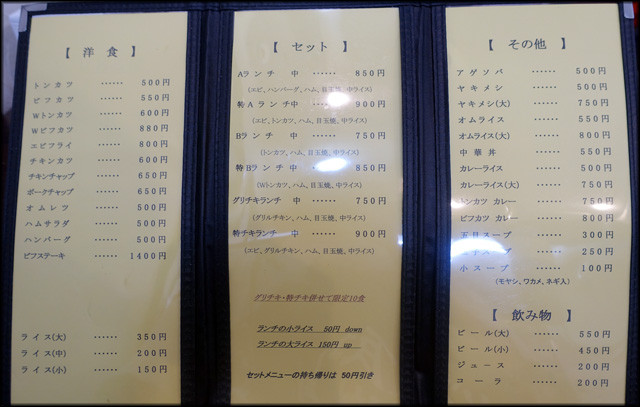 【 洋 食 】
トンカツ ‥‥‥ 500円
ビフカツ ‥‥‥ 550円
Wトンカツ ‥‥‥ 600円
Wビフカツ ‥‥‥ 880円
エビフライ ‥‥‥ 800円
チキンカツ ‥‥‥ 600円
チキンチャップ ‥‥‥ 650円
ポークチャップ ‥‥‥ 650円
オムレツ ‥‥‥ 500円
ハムサラダ ‥‥‥ 500円
ハンバーグ ‥‥‥ 500円
ビフステーキ ‥‥‥ 1400円
ライス(大) ‥‥‥ 350円
ライス(中) ‥‥‥ 200円
ライス(小) ‥‥‥ 150円
【 セット 】
Aランチ 中 ‥‥‥ 850円
(エビ、ハンバーグ、ハム、目玉焼、中ライス)
特Aランチ 中 ‥‥‥ 900円
(エビ、トンカツ、ハム、目玉焼、中ライス)
Bランチ 中 ‥‥‥ 750円
(トンカツ、ハム、目玉焼、中ライス)
特Bランチ 中 ‥‥‥ 850円
(Wトンカツ、ハム、目玉焼、中ライス)
グリチキランチ 中 ‥‥‥ 750円
(グリルチキン、ハム、目玉焼、中ライス)
特チキランチ 中 ‥‥‥ 900円
(エビ、グリルチキン、ハム、目玉焼、中ライス)
グリチキ・特チキ併せて限定10食
ランチの小ライス 50円 down
ランチの大ライス 150円 up
セットメニューの持ち帰りは 50円引き
【 その他 】
アゲソバ ‥‥‥ 500円
ヤキメシ ‥‥‥ 500円
ヤキメシ(大) ‥‥‥ 750円
オムライス ‥‥‥ 550円
オムライス(大) ‥‥‥ 800円
中華丼 ‥‥‥ 550円
カレーライス ‥‥‥ 500円
カレーライス(大) ‥‥‥ 750円
トンカツ カレー ‥‥‥ 750円
ビフカツ カレー ‥‥‥ 800円
五目スープ ‥‥‥ 300円
スープ ‥‥‥ 250円
小スープ ‥‥‥ 100円
(モヤシ、ワカメ、ネギ入)
【 飲み物 】
ビール(大) ‥‥‥ 550円
ビール(小) ‥‥‥ 450円
ジュース ‥‥‥ 200円
コーラ ‥‥‥ 200円